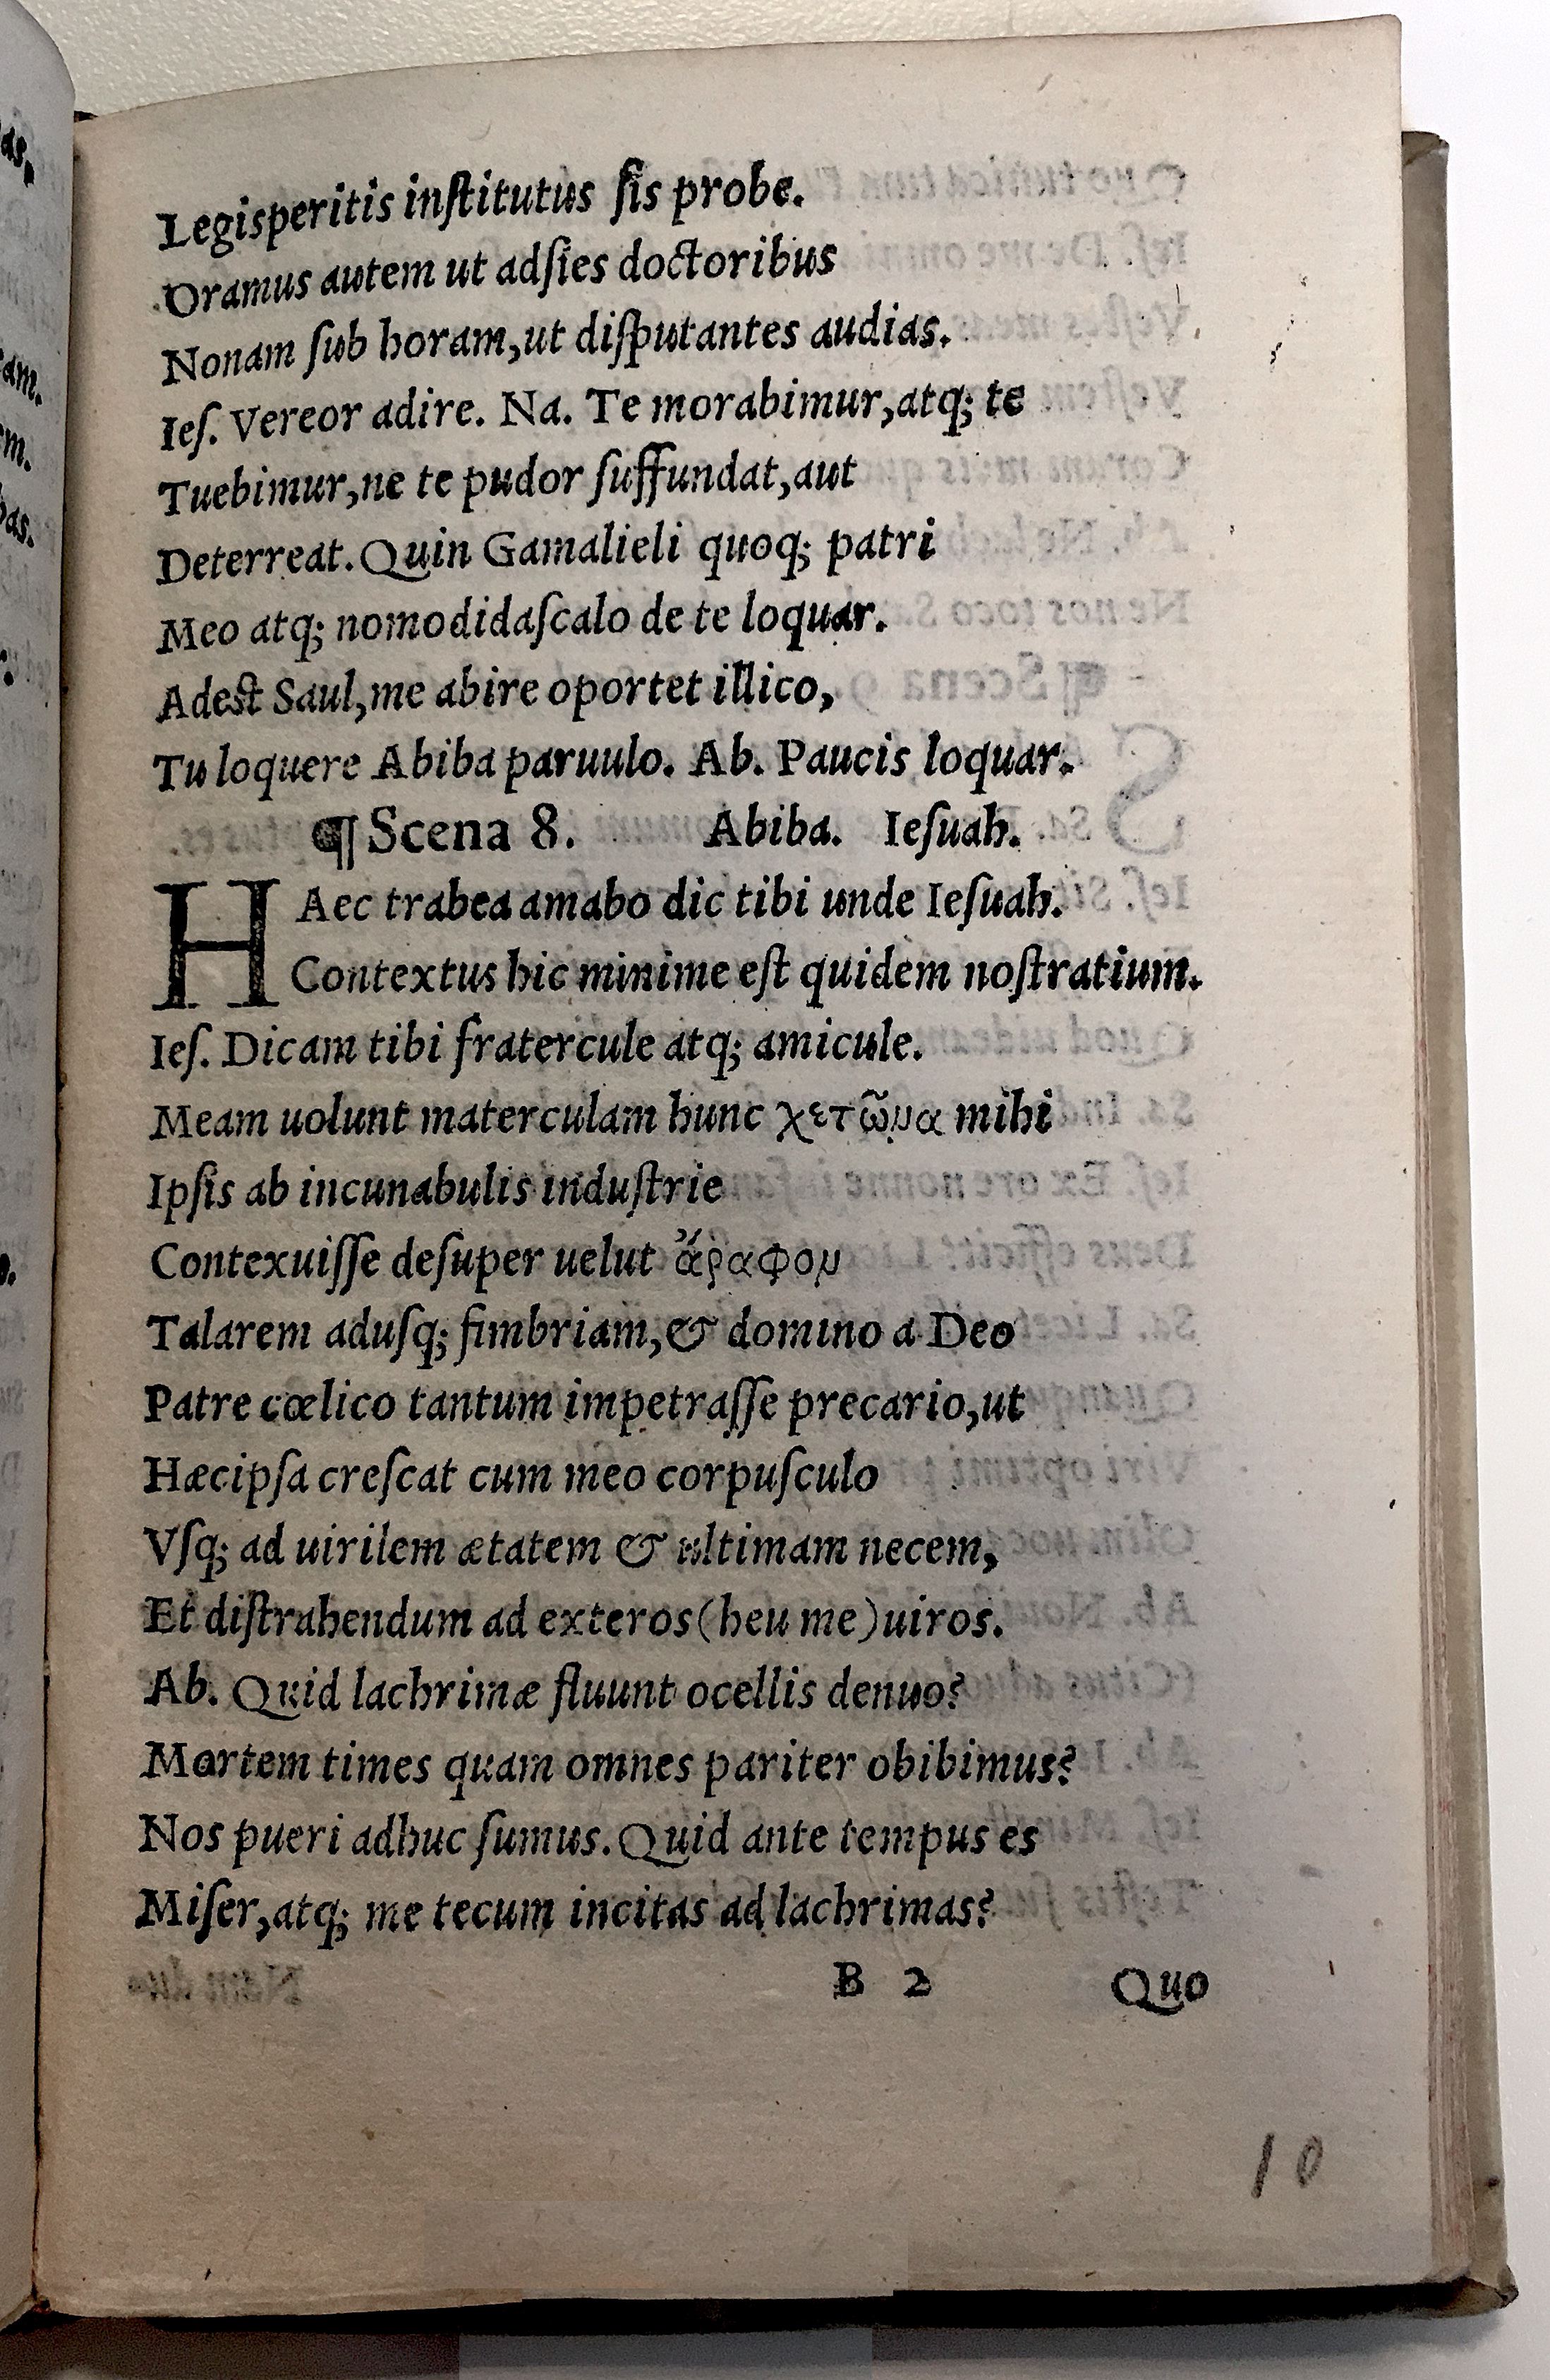 Legisperitis inſtitutus ſis probe.
Oramus autem ut adſies doctoribus
Nonam ſub horam,ut diſputantes audias.
Ieſ. Vereor adire. Na. Te morabimur,atq; te
Tuebimur,ne te pudor ſuffundat,aut
Deterreat. Quin Gamalieli quoq; patri
Meo atq; nomodidaſcalo de te loquar.
Adest Saul,me abire oportet illico,
Tu loquere Abiba paruulo. Ab. Paucis loquar.
¶ Scena 8. Abiba. Ieſuah.
HAec trabea amabo dic tibi unde Ieſuah.
Contextus hic minime eſt quidem noſtratium.
Ieſ. Dicam tibi fratercule atq; amicule.
Meam uolunt materculam hunc χετῶνα mihi
Ipſis ab incunabulis induſtrie
Contexuiſſe deſuper uelut ἄραφον
Talarem aduſq; fimbriam,& domino a Deo
Patre cœlico tantum impetraſſe precario,ut
Hæcipſa creſcat cum meo corpuſculo
Vſq; ad uirilem ætatem & ultimam necem,
Et diſtrahendum ad exteros(heu me)uiros.
Ab. Quid lachrimæ fluunt ocellis denuo?
Mortem times quam omnes pariter obibimus?
Nos pueri adhuc ſumus. Quid ante tempus es
Miſer,atq; me tecum incitas ad lachrimas?
B 2 Quo
10